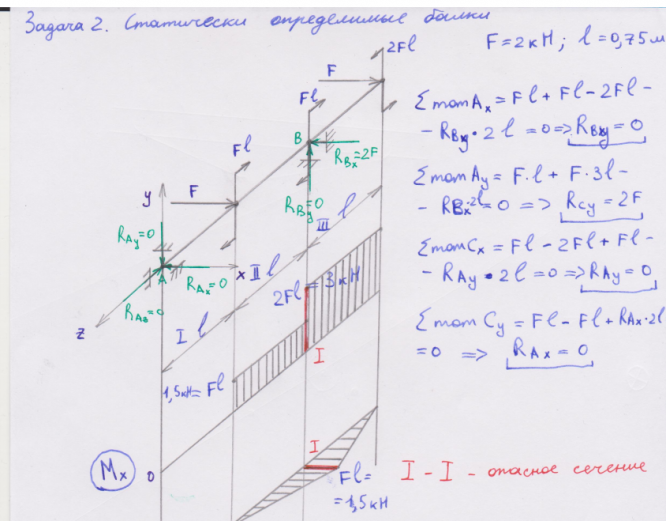 Задача 2. Статически определимые балки
F = 2кН; l = 0,75м
2Fl
F
Fl
B
R_Bx=2F
Fl
F
R_By=0
y
R_Ay=0
A
R_Ax=0
x
R_Az=0
z
I l
II l
III l
2Fl = 3кН
I
1,5кН= Fl
Mx
0
I
Fl=
=1,5кН
Σ mom A_x = Fl + Fl - 2Fl -
- R_By · 2l = 0 => R_By = 0
Σ mom A_y = F·l + F·3l -
- R_Bx·2l = 0 => R_Cy = 2F
Σ mom C_x = Fl - 2Fl + Fl -
- R_Ay · 2l = 0 => R_Ay = 0
Σ mom C_y = Fl - Fl + R_Ax·2l
= 0 => R_Ax = 0
I - I - опасное сечение